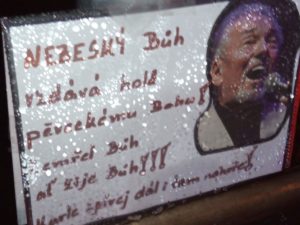 NEBESKÝ Bůh
vzdává hold
pěveckému Bohu!
Zemřel Bůh
ať žije Bůh!!!
Karle zpívej dál i tam nahoře!